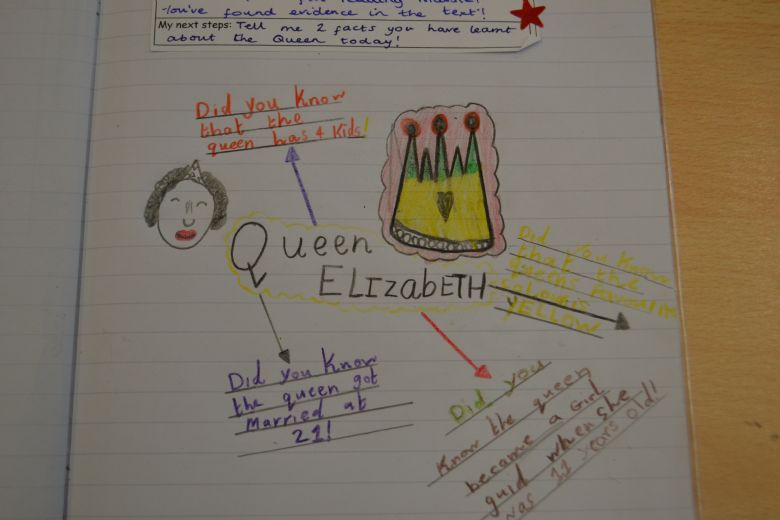 You've found evidence in the text!
My next steps: Tell me 2 facts you have learnt
about the Queen today!
Did you Know
that the
queen has 4 Kids!
Queen
ELIzabETH
Did you Know
that the
queens
colour is
YELLOW
Did you Know
the queen got
Married at
21!
Did you
Know the queen
became a Girl
guid when she
was 11 years old!